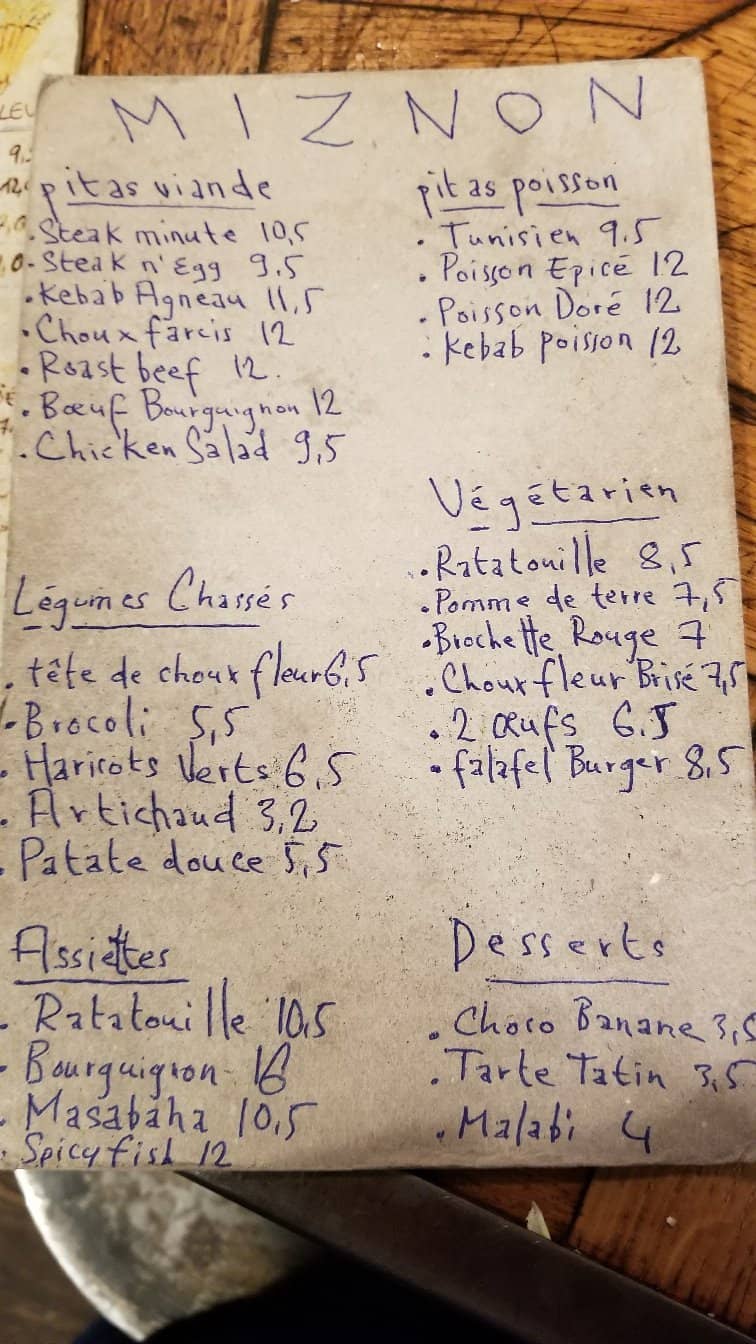 MIZNON
pitas viande
. Steak minute 10,5
- Steak n' Egg 9.5
. Kebab Agneau 11,5
. Choux farcis 12
. Roast beef 12.
. Bœuf Bourguignon 12
. Chicken Salad 9,5
pitas poisson
. Tunisien 9.5
. Poisson Epicé 12
. Poisson Doré 12
. Kebab poisson 12
Végétarien
. Ratatouille 8,5
. Pomme de terre 7,5
. Brochette Rouge 7
. Choux fleur Brisé 7,5
. 2 œufs 6.5
. falafel Burger 8,5
Légumes Chassés
. tête de choux fleur 6,5
- Brocoli 5,5
. Haricots Verts 6,5
. Artichaud 3,2
. Patate douce 5,5
Assiettes
- Ratatouille 10,5
- Bourguignon 16
. Masabaha 10,5
. Spicy fish 12
Desserts
. Choco Banane 3,5
. Tarte Tatin 3,5
. Malabi 4